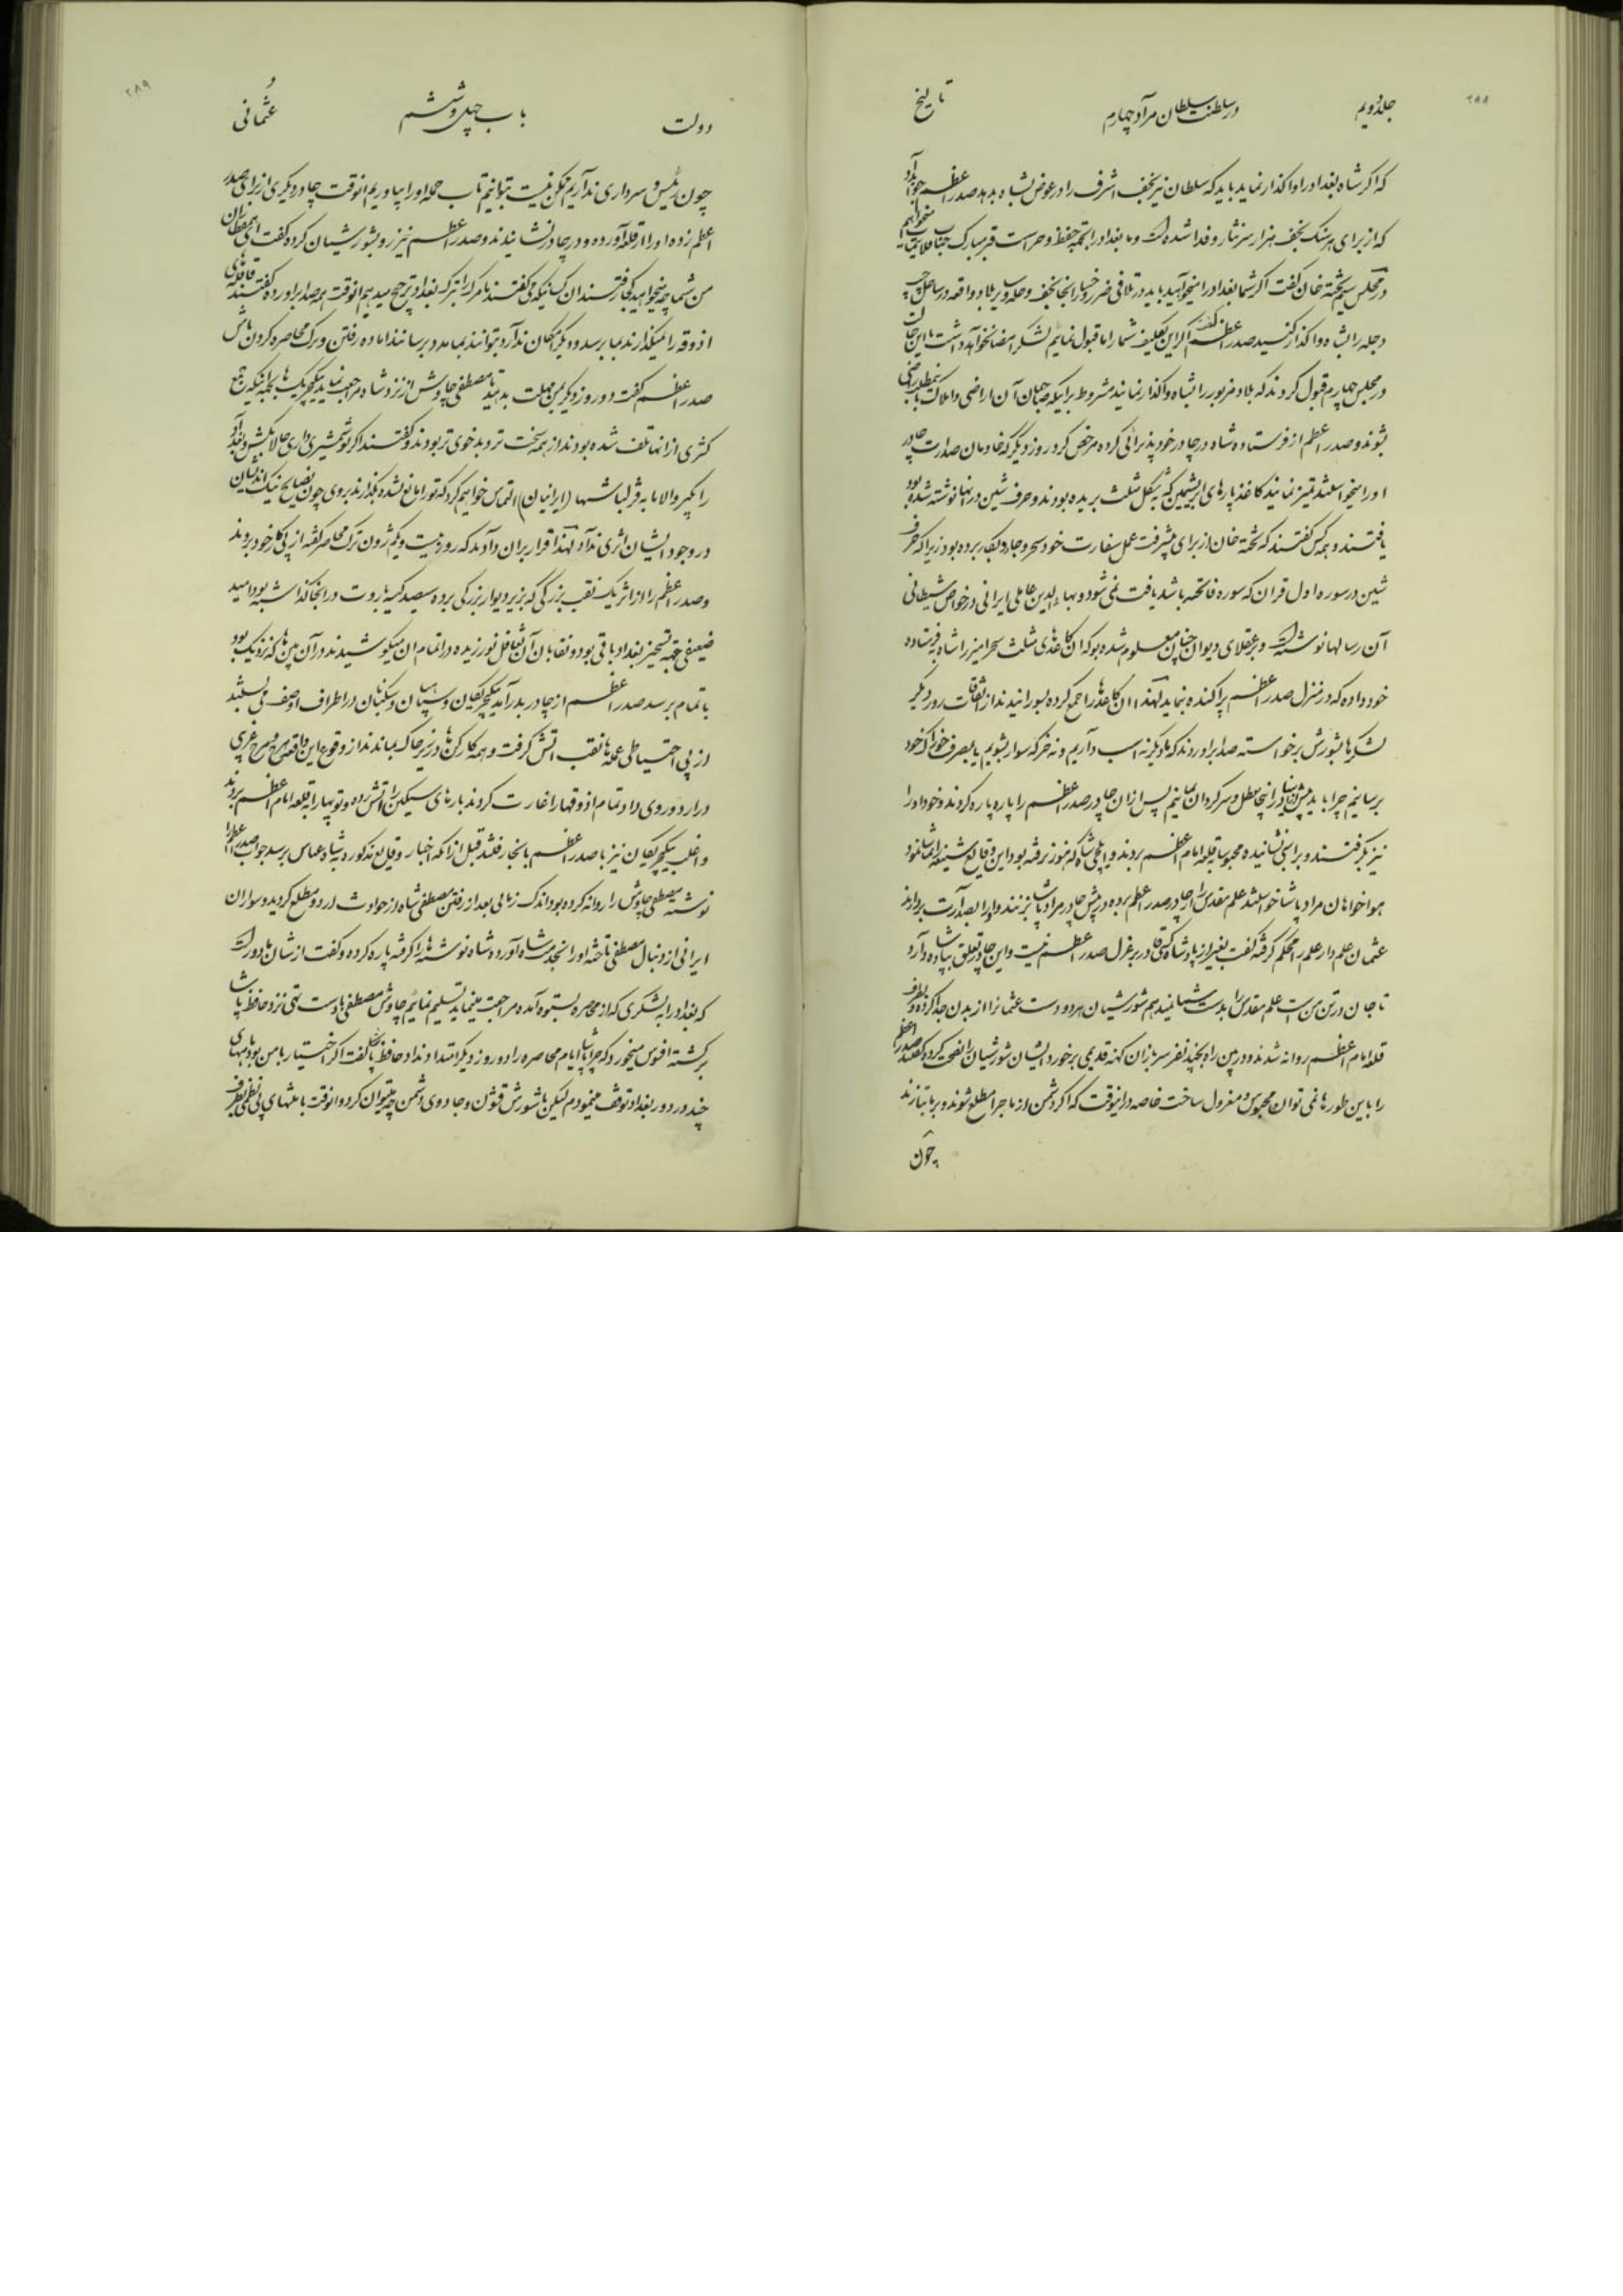 ۲۸۸
جلد دویم
در سلطنت سلطان مراد چهارم
تاریخ
که اگر شاه بغداد را واگذار نماید باید که سلطان نیز نجف اشرف را در عوض بشاه بدهد صدر اعظم جواب داد
که از برای هر سنگ نجف هزار سر نثار و فدا شده است و ما بغداد را بجهة حفظ و حراست قبر مبارک جناب
در مجلس سیم تخته خان گفت اگر شما بغداد را میخواهید باید در تلافی ضرر و خسارات نجف و حله و سایر بلاد واقعه در ساحل
دجله را بشاه واگذار کنید صدر اعظم گفت اگر این تکلیف شما را ما قبول نمائیم لشکر امضا نخواهد داشت با این حالت
در مجلس چهارم قبول کردند که بلاد مزبور را بشاه واگذار نمایند مشروط بر اینکه صاحبان آن اراضی و املاک باینمطلب راضی
بشوند و صدر اعظم از فرستاده شاه در چادر خود پذیرائی کرده مرخص کرد روز دیگر که خادمان صدارت چادر
او را میخواستند تمیز نمایند کاغذ پارهای ابریشمین که بشکل مثلث بریده بودند و حرف شین در آنها نوشته شده بود
یافتند و همه کس گفتند که تخته خان از برای پیشرفت عمل سفارت خود سحر و جادو بکار برده بود زیرا که حرف
شین در سوره اول قرآن که سوره فاتحه باشد یافت نمی شود و بهاء الدین عاملی ایرانی در خواص شیطانی
آن رسالها نوشته است و بر عقلای دیوان چنان معلوم شده بود که آن کاغذهای مثلث سحر آمیز را شاه بفرستاده
خود داده که در منزل صدر اعظم پراکنده نماید لهذا آن کاغذها را جمع کرده بسوزانیدند از اتفاقات روز دیگر
لشکرها بشورش برخواسته صدا برآوردند که ما دیگر نه اسب داریم و نه خر که سوار بشویم یا بمصرف خوراک خود
برسانیم چرا باید بیش از این ما در اینجا معطل و سرگردان بمانیم پس از آن چادر صدر اعظم را پاره پاره کردند و خود او را
نیز بگرفتند و بر اسبی نشانیده محبوسا بقلعه امام اعظم بردند و ایلچی شاه که هنوز نرفته بود این وقایع را تماشا نمود
هواخواهان مراد پاشا خواستند علم مقدس را از چادر صدر اعظم برده در پیش چادر مراد پاشا بزنند و او را بصدارت بردارند
عثمان علم دار علم را محکم گرفته گفت بغیر از پادشاه کسی قادر بر عزل صدر اعظم نیست و این چادر تعلق بپادشاه دارد
تا جان در تن من است علم مقدس را بدست شما نمیدهم شورشیان هر دو دست عثمان را از بدن جدا کرده و بطرف
قلعه امام اعظم روانه شدند و در بین راه بچند نفر سربازان کهنه قدیمی برخورد ایشان شورشیان را نصیحت کرده گفتند صدر اعظم
را باین طورها نمی توان محبوس و معزول ساخت خاصه در اینوقت که اگر دشمن از ماجرا مطلع شوند و بر ما بتازند
چون
۲۸۹
دولت
باب چهل و ششم
عثمانی
چون رئیس و سرداری نداریم ممکن نیست بتوانیم تاب حمله او را بیاوریم انوقت چادر دیگری از برای صدر
اعظم زده او را از قلعه آورده و در چادر نشانیدند و صدر اعظم نیز رو بشورشیان کرده گفت
من شما چه میخواهید کجا رفتند آن کسانیکه می گفتند ما مرگ را بترک بغداد ترجیح میدهیم انوقت همه صدا برآورده گفتند
اذوقه را نمیگذارند بما برسد و دیگر امکان ندارد بتوانند بما مدد برسانند آماده رفتن و ترک محاصره کردن باش
صدر اعظم گفت دو روز دیگر بمن مهلت بدهید تا مصطفی چاوش از نزد شاه مراجعت نماید ینگچریها با اینکه جمع
کثیری از آنها تلف شده بودند از همه سخت تر و بدخوی تر بودند و گفتند اگر تو شمشیری داری حالا بکش و بغداد
را بگیر والا ما به قزلباشها (ایرانیان) التماس خواهیم کرد که تو را مانع نشده بگذارند بروی چون نصایح نیک اندیشان
در وجود ایشان اثری نداد لهذا قرار بر آن دادند که روز بیست و یکم ژون ترک محاصره گفته از پی کار خود بروند
و صدر اعظم را از اثر یک نقب بزرگی که بزیر دیوار بزرگی برده سیصد کیسه باروت در آنجا گذاشته بود امید
ضعیفی بجهة تسخیر بغداد باقی بود و نقابان آن تغافل نورزیده در اتمام آن میکوشیدند در آن بین ها که نزدیک بود
باتمام برسد صدر اعظم از چادر بدر آمد ینگچریکان و سپاهیان و سکبانان در اطراف او صف می بستند
از بی احتیاطی عمله ها نقب آتش گرفت و همه کارکن ها در زیر خاک بماندند از وقوع این واقعه هرج و مرج غریبی
در اردو روی داد و تمام اذوقها را غارت کردند بارهای سنگین را آتش زده و توپها را بقلعه امام اعظم بردند
و اغلب ینگچریکان نیز با صدر اعظم بانجا رفتند قبل از آنکه اخبار وقایع مذکوره بشاه عباس برسد جواب صدر اعظم را
نوشته مصطفی چاوش را روانه کرده بود اندک زمانی بعد از رفتن مصطفی شاه از حوادث اردو مطلع گردید و سواران
ایرانی از دنبال مصطفی تاخته او را بخدمت شاه آورده شاه نوشته ها را گرفته پاره کرده و گفت از شان ما دور است
که بغداد را به لشکری که از محاصره بستوه آمده مراجعت مینماید تسلیم نمائیم چاوش مصطفی با دست تهی نزد حافظ پاشا
برگشته افسوس میخورد که چرا پاشا ایام محاصره را دو روز دیگر امتداد نداد حافظ پاشا گفت اگر اختیار با من بود ماههای
چند در دور بغداد توقف مینمودم لیکن با شورش قشون و جادوی دشمن چه میتوان کرد و انوقت با